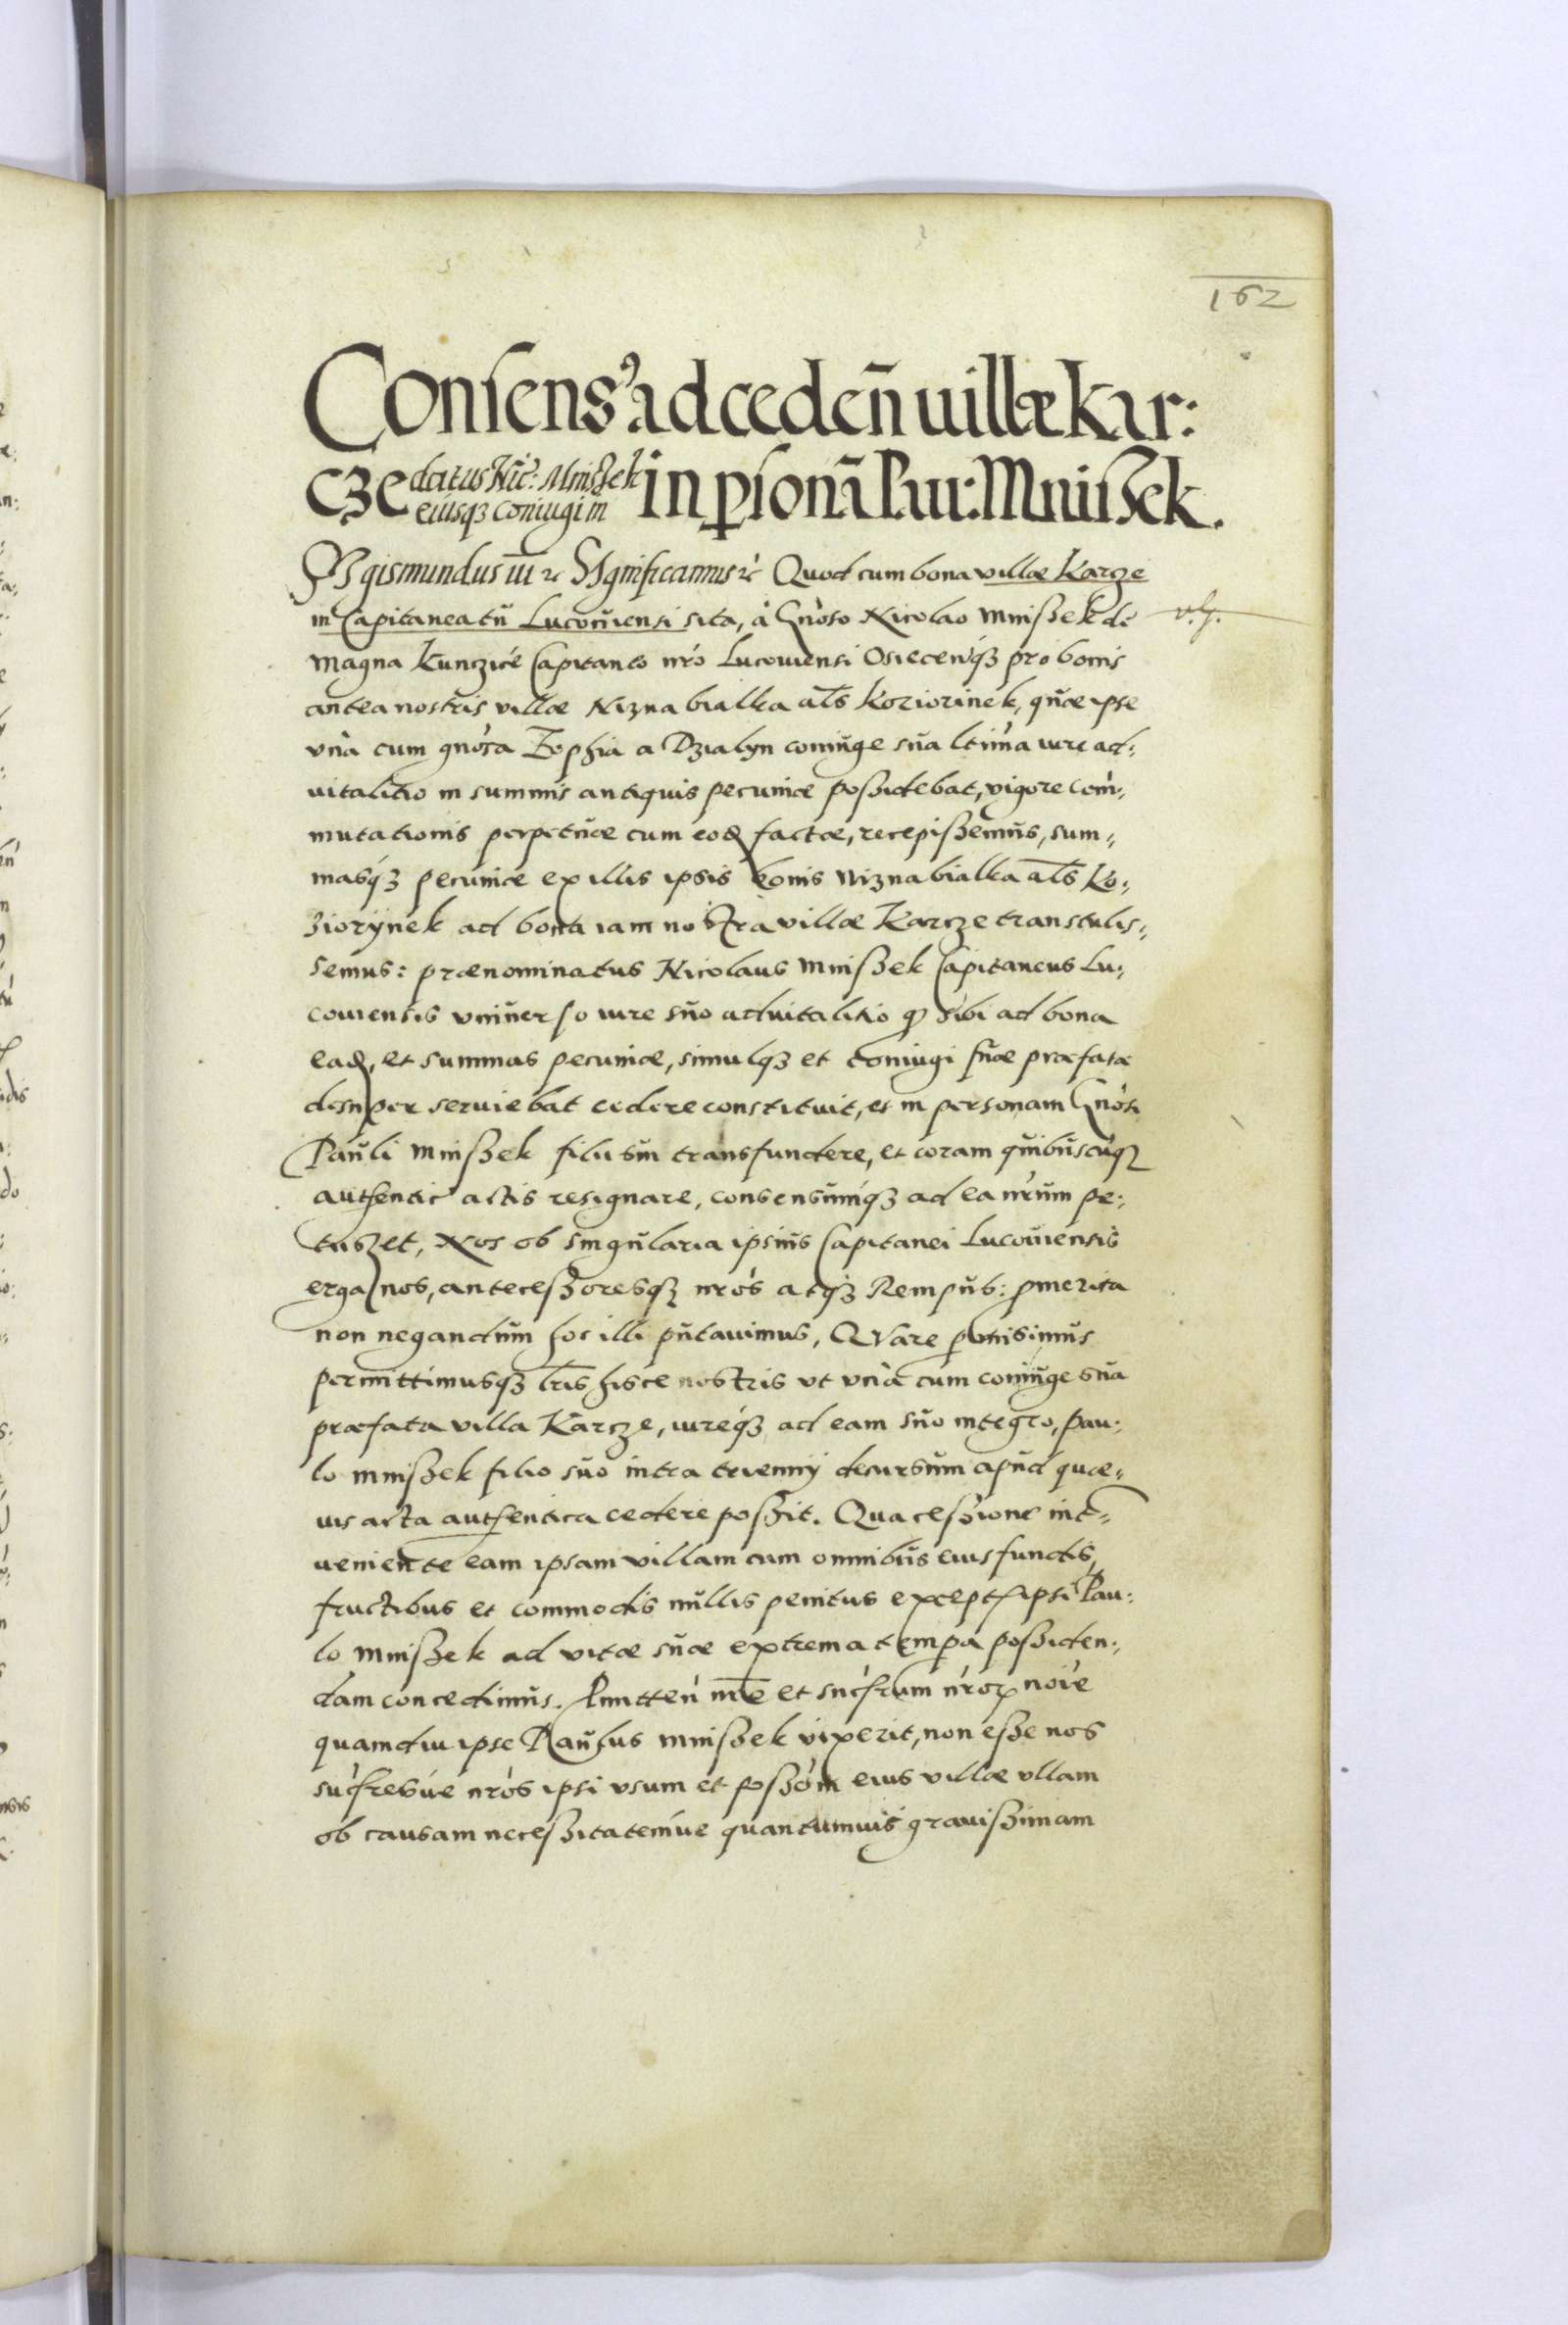 162
Consens9 ad cedeñ uillæ Kar:
cze datus Nic: Mniszek eiusq3 coniugi in in psonā Pau: Mniszek.
Sigismundus iii ꝛc Significamus ꝛc Quod cum bona villæ Karcze
in Capitaneatu Lucouiensi sita, à Gnoso Nicolao Mniszek de
Magna Kunczice Capitaneo nro Lucouiensi Osiecenq3 pro bonis
antea nostris villæ Nizna bialka als Koziorinek, quæ ipse
vnà cum gnosa Zophia a Dzialyn coniuge sua ltima iure ad:
uitalitio in summis antiquis pecuniæ possidebat, vigore com:
mutationis perpetuæ cum eod factæ, recepissemus, sum:
masq3 pecuniæ ex illis ipsis bonis Nizna bialka als Ko:
ziorynek ad bona iam nostra villæ Karcze transtulis:
semus: prænominatus Nicolaus Mniszek Capitaneus Lu:
couiensis vniuerso iure suo aduitalitio qd sibi ad bona
ead, et summas pecuniæ, simulq3 et coniugi suæ præfatæ
desuper seruiebat cedere constituit, et in personam Gnosi
Pauli Mniszek filii sui transfundere, et coram quibuscuq3
authentic actis resignare, consensumq3 ad ea nrum pe:
tiisset, Nos ob singularia ipsius Capitanei Lucouiensis
erga nos, antecessoresq3 nros atq3 Rempub: pmerita
non negandum hoc illi putauimus, Quare pmisimus
permittimusq3 lris hisce nostris vt vnà cum coniuge sua
præfata villa Karcze, iureq3 ad eam suo integro, Pau:
lo Mniszek filio suo intra triennij decursum apud quæ:
uis acta authentica cedere possit. Qua cessione int:
ueniente eam ipsam villam cum omnibus eius fundis,
fructibus et commodis nullis penitus except ipsi Pau:
lo Mniszek ad vitæ suæ extrema tempa possiden:
dam concedimus. Pmitten nre et sucsrum nror noie
quamdiu ipse Paulus Mniszek vixerit, non esse nos
sucsresue nros ipsi vsum et possom eius villæ vllam
ob causam necessitatemue quantumuis grauissimam